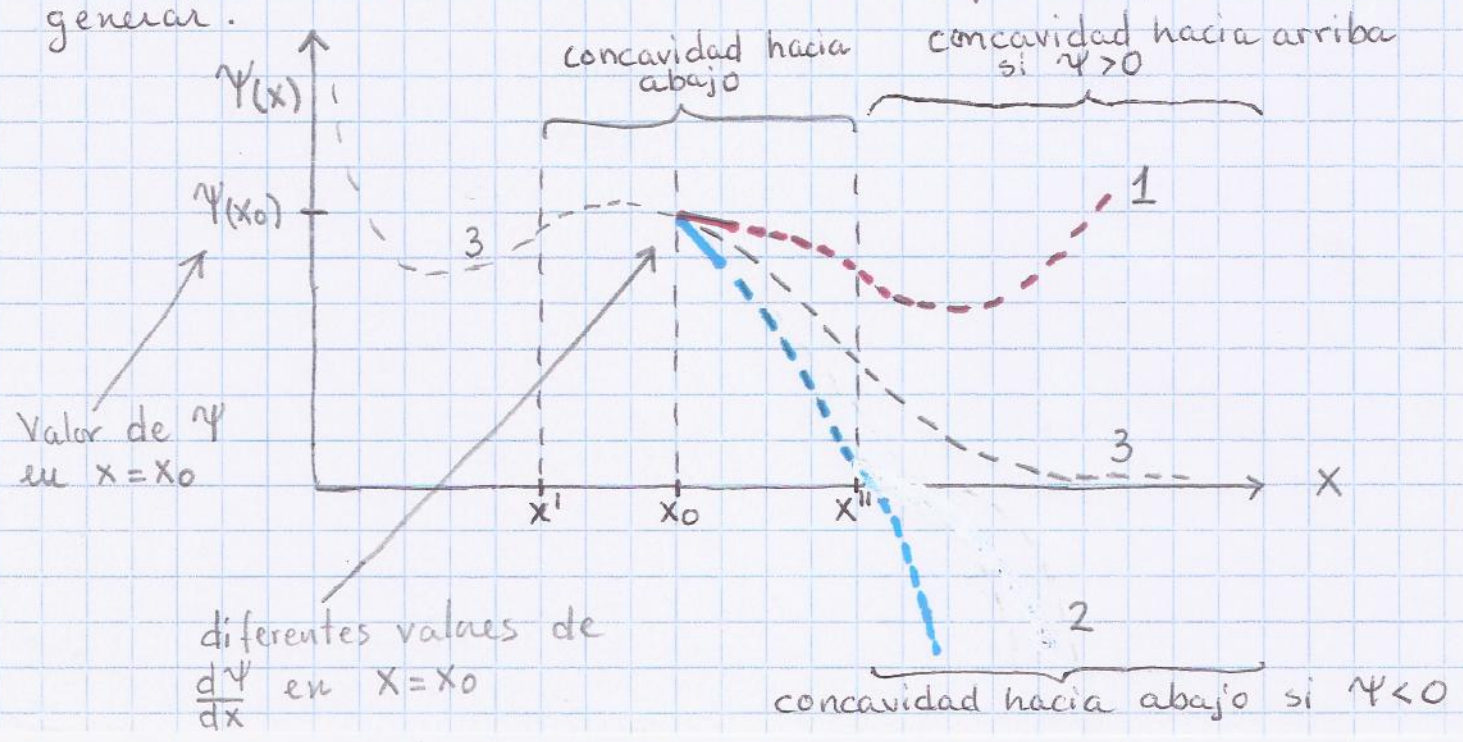 general.
concavidad hacia
abajo
concavidad hacia arriba
si Ψ>0
Ψ(x)
Ψ(x₀)
1
3
3
Valor de Ψ
en x=x₀
x'
x₀
x"
x
2
diferentes valores de
dΨ/dx en x=x₀
concavidad hacia abajo si Ψ<0